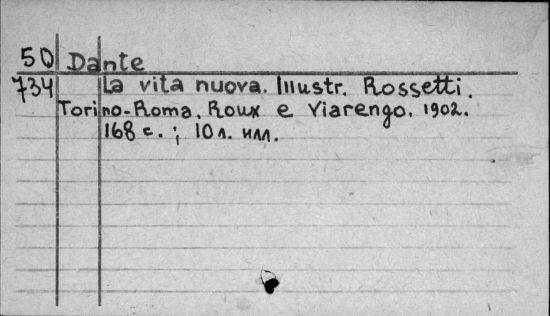 50 Dante
734 La vita nuova. Illustr. Rossetti.
Torino-Roma, Roux e Viarengo, 1902.
168 с. ; 10 л. илл.